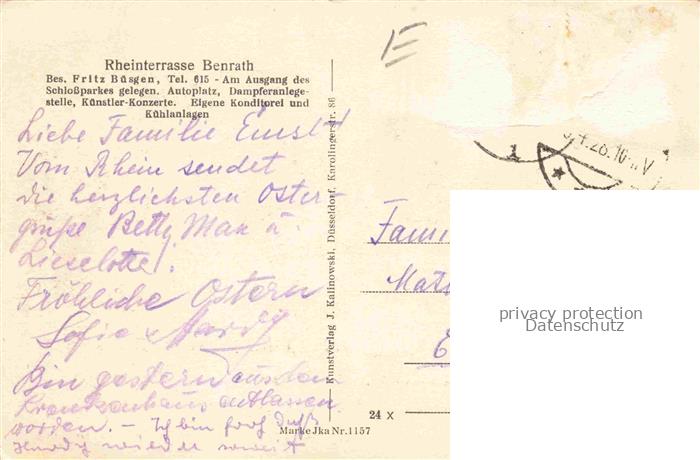 Rheinterrasse Benrath
Bes. Fritz Büsgen, Tel. 615 - Am Ausgang des
Schloßparkes gelegen. Autoplatz, Dampferanlege-
stelle, Künstler-Konzerte. Eigene Konditorei und
Kühlanlagen
Liebe Familie Ernst!
Vom Rhein sendet
die herzlichsten Oster-
grüße Betty Max u.
Lieselotte!
Fröhliche Ostern
Sofie
Bin gestern aus dem
Krankenhaus entlassen
worden. - Ich bin froh daß
wieder soweit
Kunstverlag J. Kalinowski, Düsseldorf, Karolingerstr. 86
Marke Jka Nr. 1157
E
1
Fami
Mat
E
24 x
privacy protection
Datenschutz